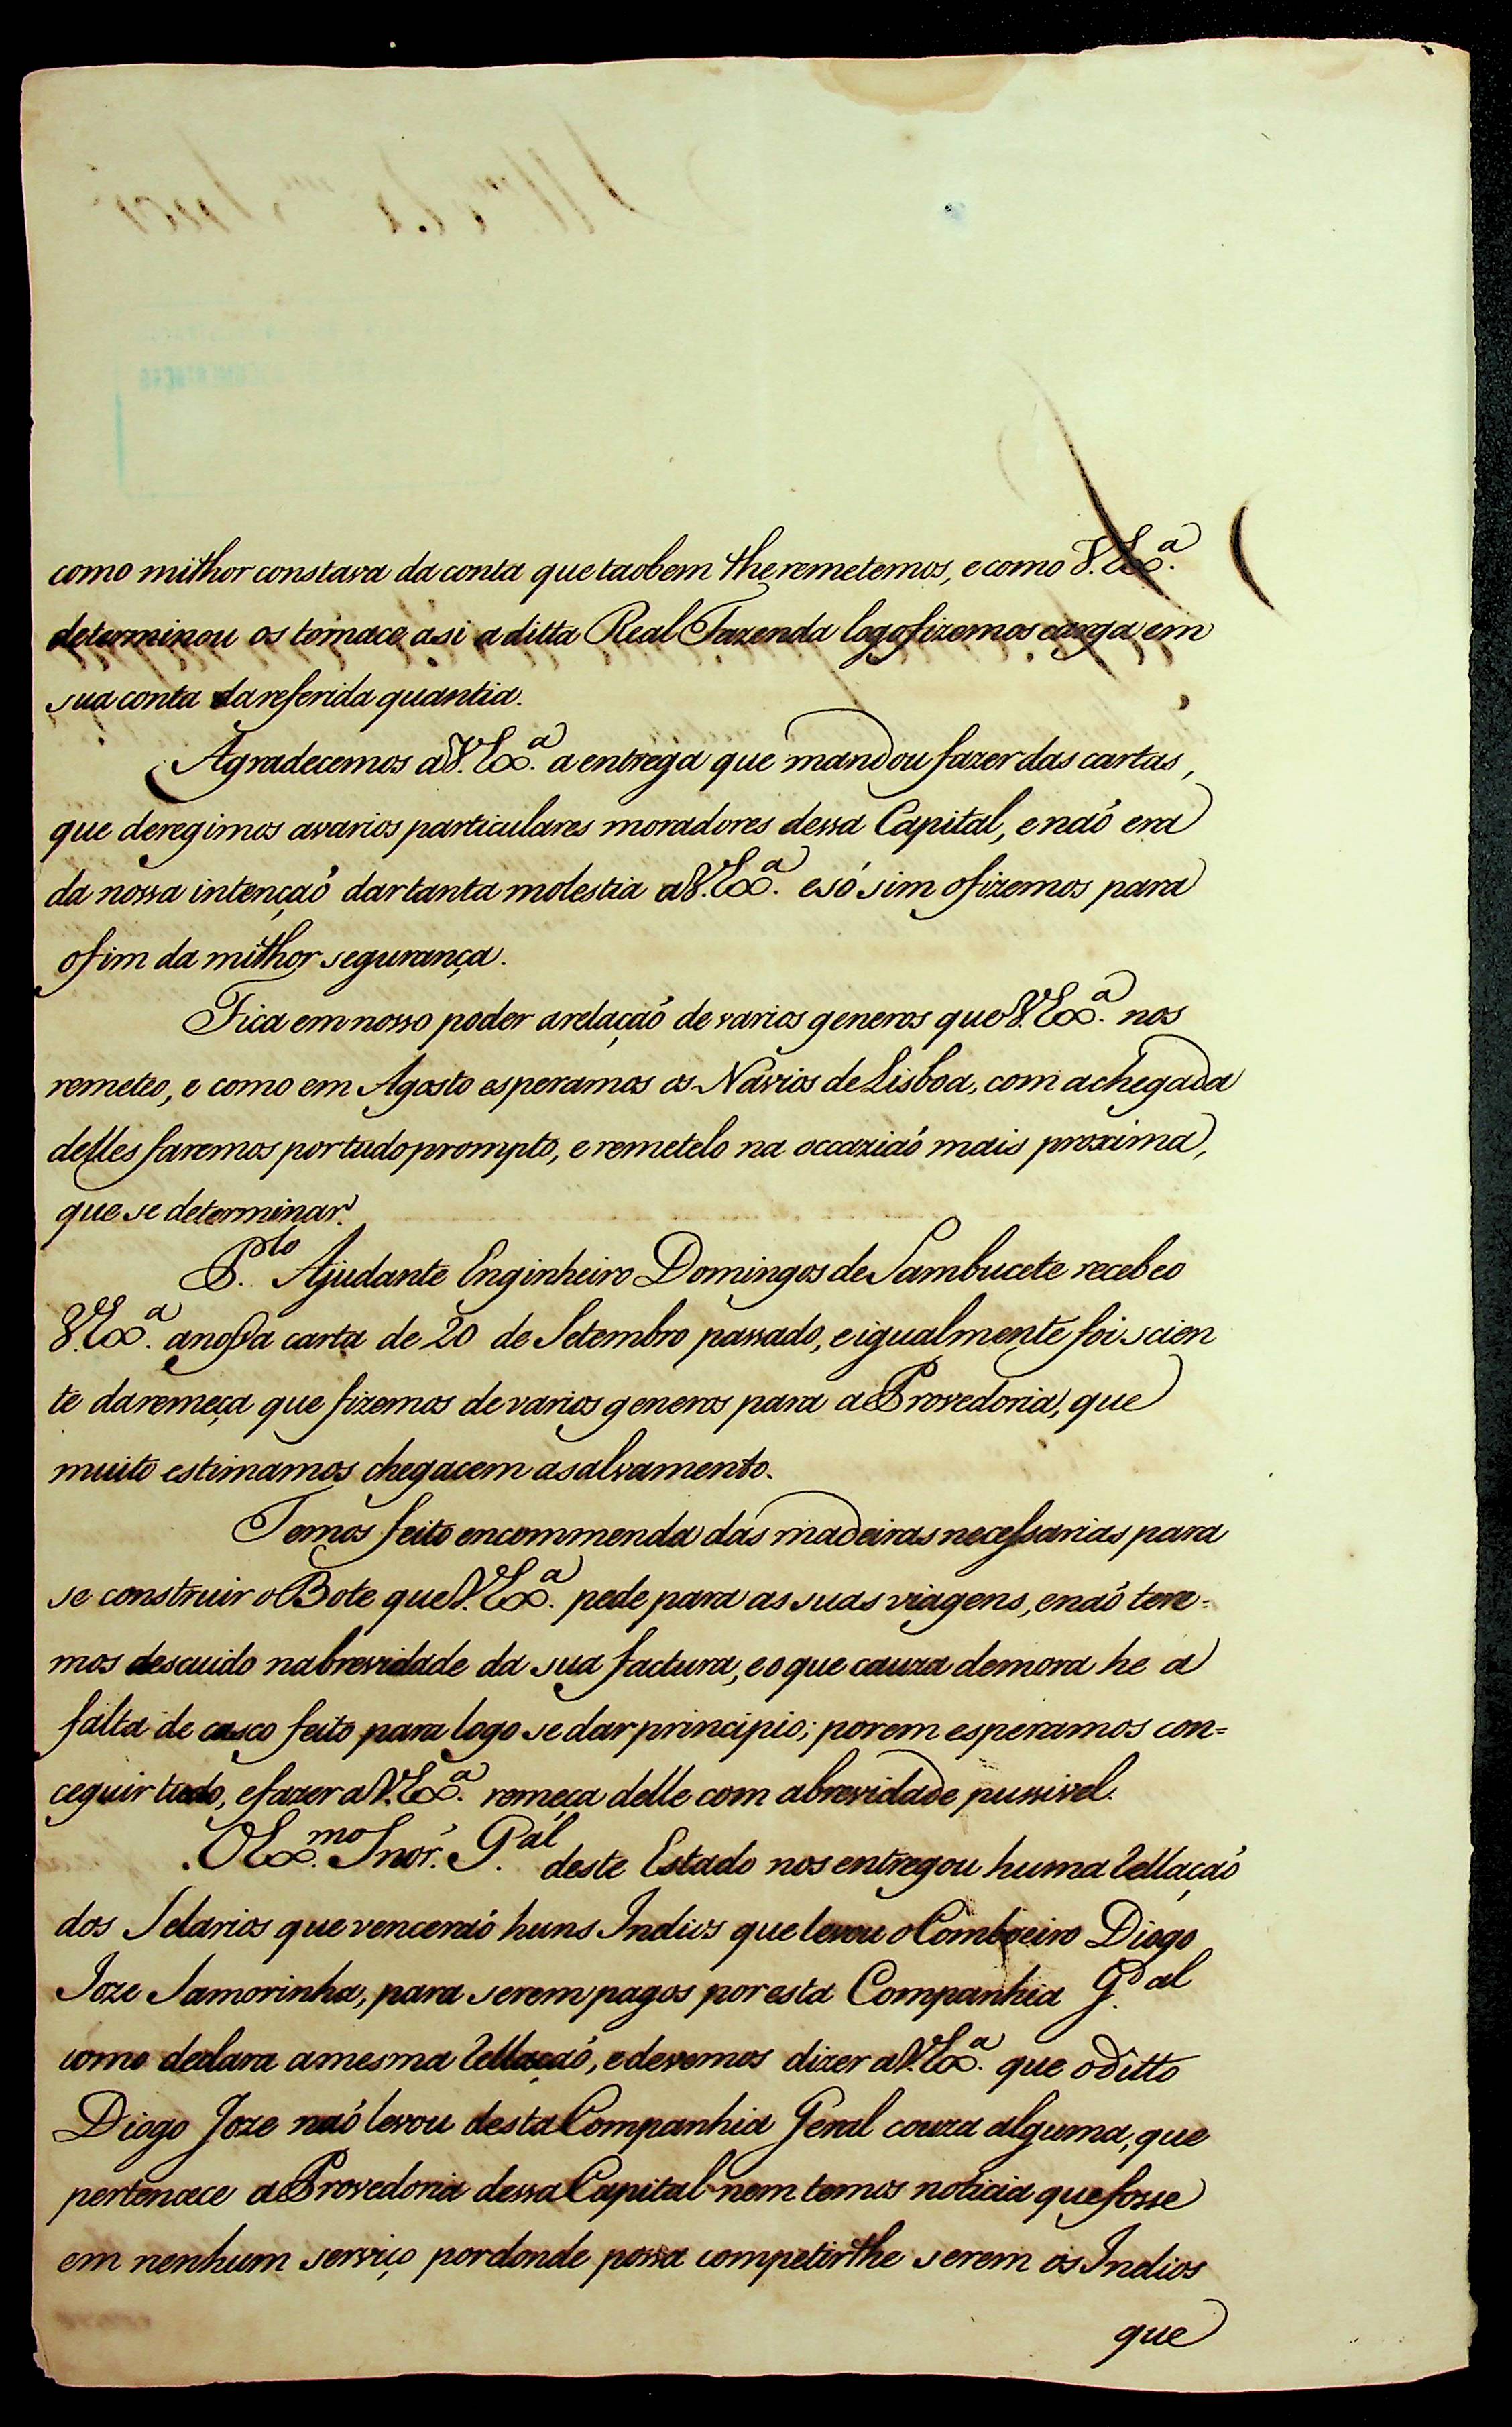 como milhor constava da conta que taobem lhe remetemos, e como V. Exª.
determinou os tomace asi a ditta Real Fazenda logo fizemos carga em
sua conta da referida quantia.
Agradecemos a V. Exª. a entrega que mandou fazer das cartas,
que deregimos a varios particulares moradores dessa Capital, e naó era
da nossa intençaó dar tanta molestia a V. Exª. e só sim o fizemos para
o fim da milhor segurança.
Fica em nosso poder a relaçaó de varios generos que V. Exª. nos
remeteo, e como em Agosto esperamos os Navios de Lisboa, com a chegada
delles faremos por tudo prompto, e remetelo na occaziaó mais proxima,
que se determinar.
P.lo Ajudante Enginheiro Domingos de Sambucete recebeo
V. Exª. a nossa carta de 20 de Setembro passado, e igualmente foi scien
te da remeça que fizemos de varios generos para a Provedoria, que
muito estimamos chegacem a salvamento.
Temos feito encommenda das madeiras necessarias para
se construir o Bote que V. Exª. pede para as suas viagens, e naó tere=
mos descuido na brevidade da sua factura, e o que cauza demora he a
falta de casco feito para logo se dar principio; porem esperamos con=
ceguir tudo, e fazer a V. Exª. remeça delle com a brevidade pussivel.
O Ex.mo Snór. G.al deste Estado nos entregou huma Rellaçaó
dos Selarios que venceraó huns Indios que levou o Comboeiro Diogo
Joze Samorinha, para serem pagos por esta Companhia G.al
como declara a mesma Rellaçaó, e devemos dizer a V. Exª. que o ditto
Diogo Joze naó levou desta Companhia Geral couza alguma, que
pertencece a Provedoria dessa Capital nem temos noticia que fosse
em nenhum serviço por donde possa competir lhe serem os Indios
que